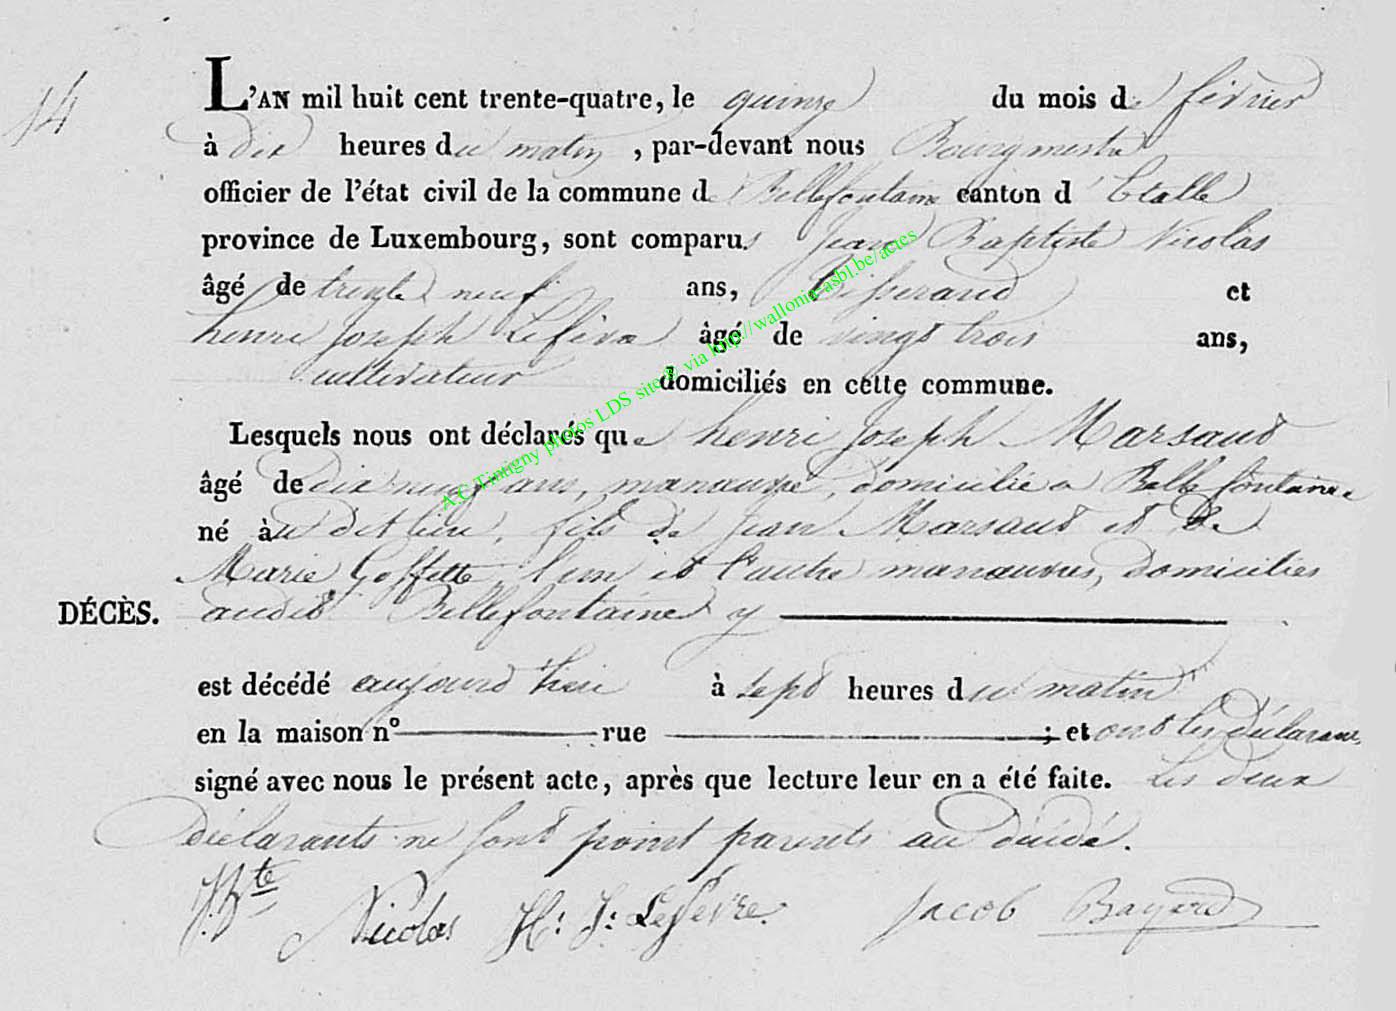 14
L'AN mil huit cent trente-quatre, le quinze du mois de février
à dix heures du matin, par-devant nous Bourgmestre
officier de l'état civil de la commune de Bellefontaine canton d'Etalle
province de Luxembourg, sont comparus Jean Baptiste Nicolas
âgé de trente neuf ans, Tisserand et
henri Joseph Lefèvre âgé de vingt trois ans,
cultivateur domiciliés en cette commune.
Lesquels nous ont déclarés que henri Joseph Marsaud
âgé de dix neuf ans, manœuvre, domicilié a Bellefontaine
né àu dit lieu, fils de Jean Marsaud et de
Marie Goffette, l'un et l'autre manœuvres, domiciliés
DÉCÈS. audit Bellefontaine y
est décédé aujourd'hui à sept heures du matin
en la maison nº rue ; et ont les déclarans
signé avec nous le présent acte, après que lecture leur en a été faite. Les deux
déclarants ne sont point parents au décédé.
J. Bte Nicolas H: J: Lefevre Jacob Bayard
A.C Tintigny photos LDS site @ via http://wallonia-asbl.be/actes